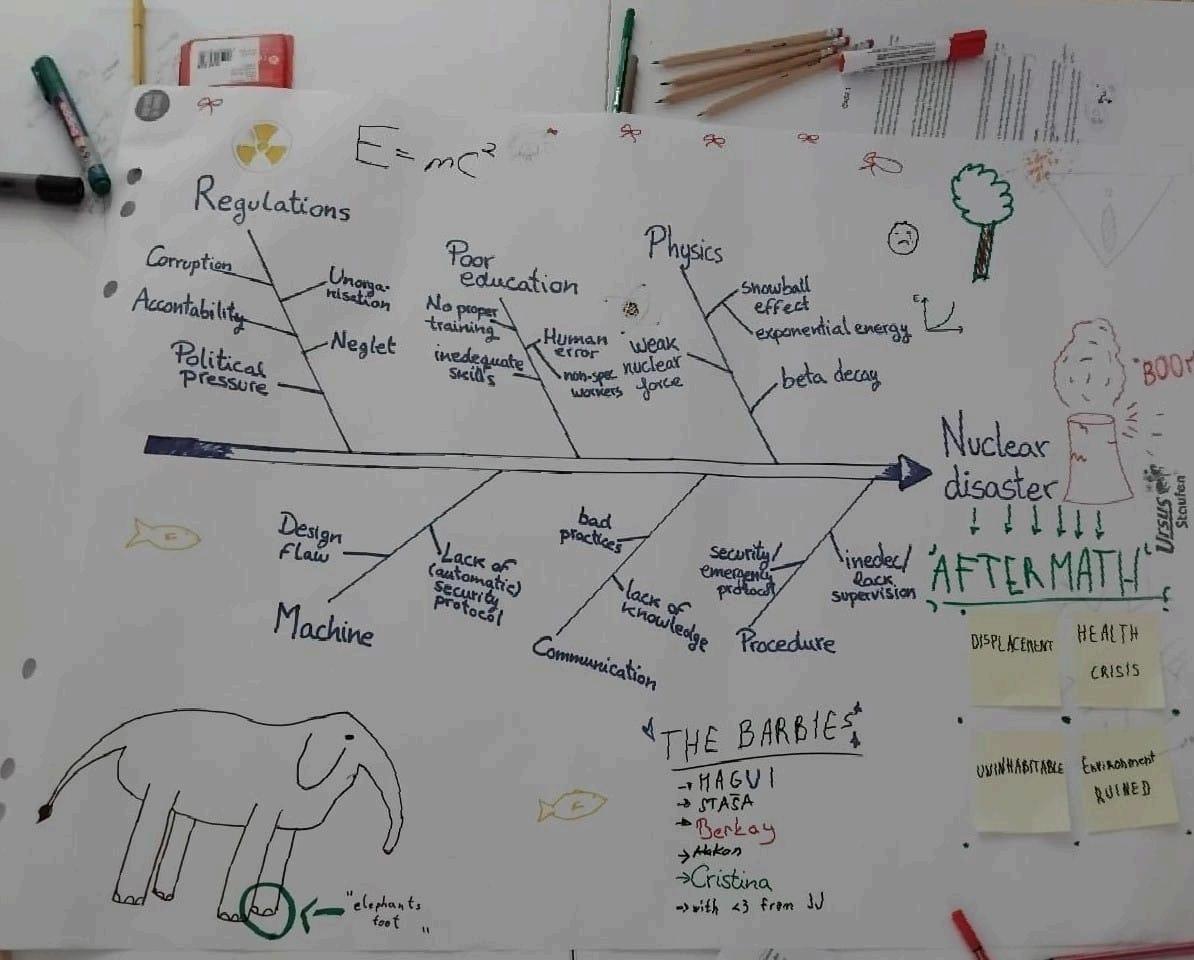 E = mc²
Regulations
Corruption
Accontability
Political
pressure
Unorga-
nisation
Neglet
Poor
education
No proper
training
inedequate
skills
Human
error
non-spec
workers
Physics
snowball
effect
exponential energy
E
weak
nuclear
force
beta decay
BOOM
Nuclear
disaster
Design
flaw
Lack of
(automatic)
security
protocol
Machine
bad
practices
lack of
knowledge
Communication
security/
emergency
protocol
inedec/
lack
supervision
Procedure
"AFTERMATH"
DISPLACEMENT
HEALTH
CRISIS
UNINHABITABLE
Environment
RUINED
"elephants
foot"
THE BARBIES
→ MAGUI
→ STAŠA
→ Berkay
→ Hakon
→ Cristina
→ with <3 from JJ
Staufen